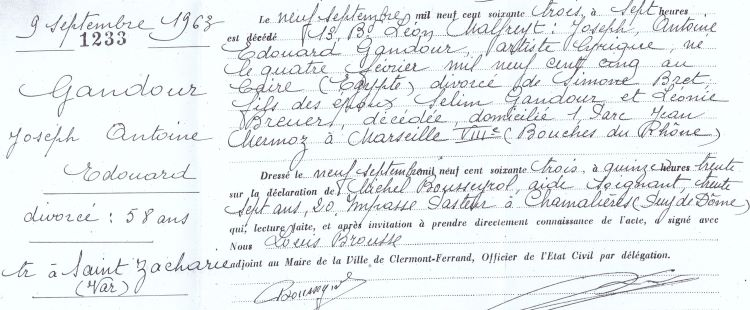 9 septembre 1963
1233
Gandour
Joseph Antoine
Edouard
divorcé : 58 ans
tr à Saint Zacharie
(Var)
Le neuf septembre mil neuf cent soixante trois, à sept heures
est décédé 13, Bd Léon Malfreyt : Joseph, Antoine
Edouard Gandour, artiste lyrique, né
le quatre février mil neuf cent cinq au
Caire (Egypte) divorcé de Simone Bret,
fils des époux Selim Gandour et Léonie
Breuer, décédée, domicilié 1, Parc Jean
Mermoz à Marseille VIIIe (Bouches du Rhône)
Dressé le neuf septembre mil neuf cent soixante trois, à quinze heures trente
sur la déclaration de Michel Bousseyrol, aide soignant, trente
sept ans, 20, Impasse Pasteur à Chamalières (Puy de Dôme)
qui, lecture faite, et après invitation à prendre directement connaissance de l'acte, a signé avec
Nous Louis Brousse
adjoint au Maire de la Ville de Clermont-Ferrand, Officier de l'Etat Civil par délégation.